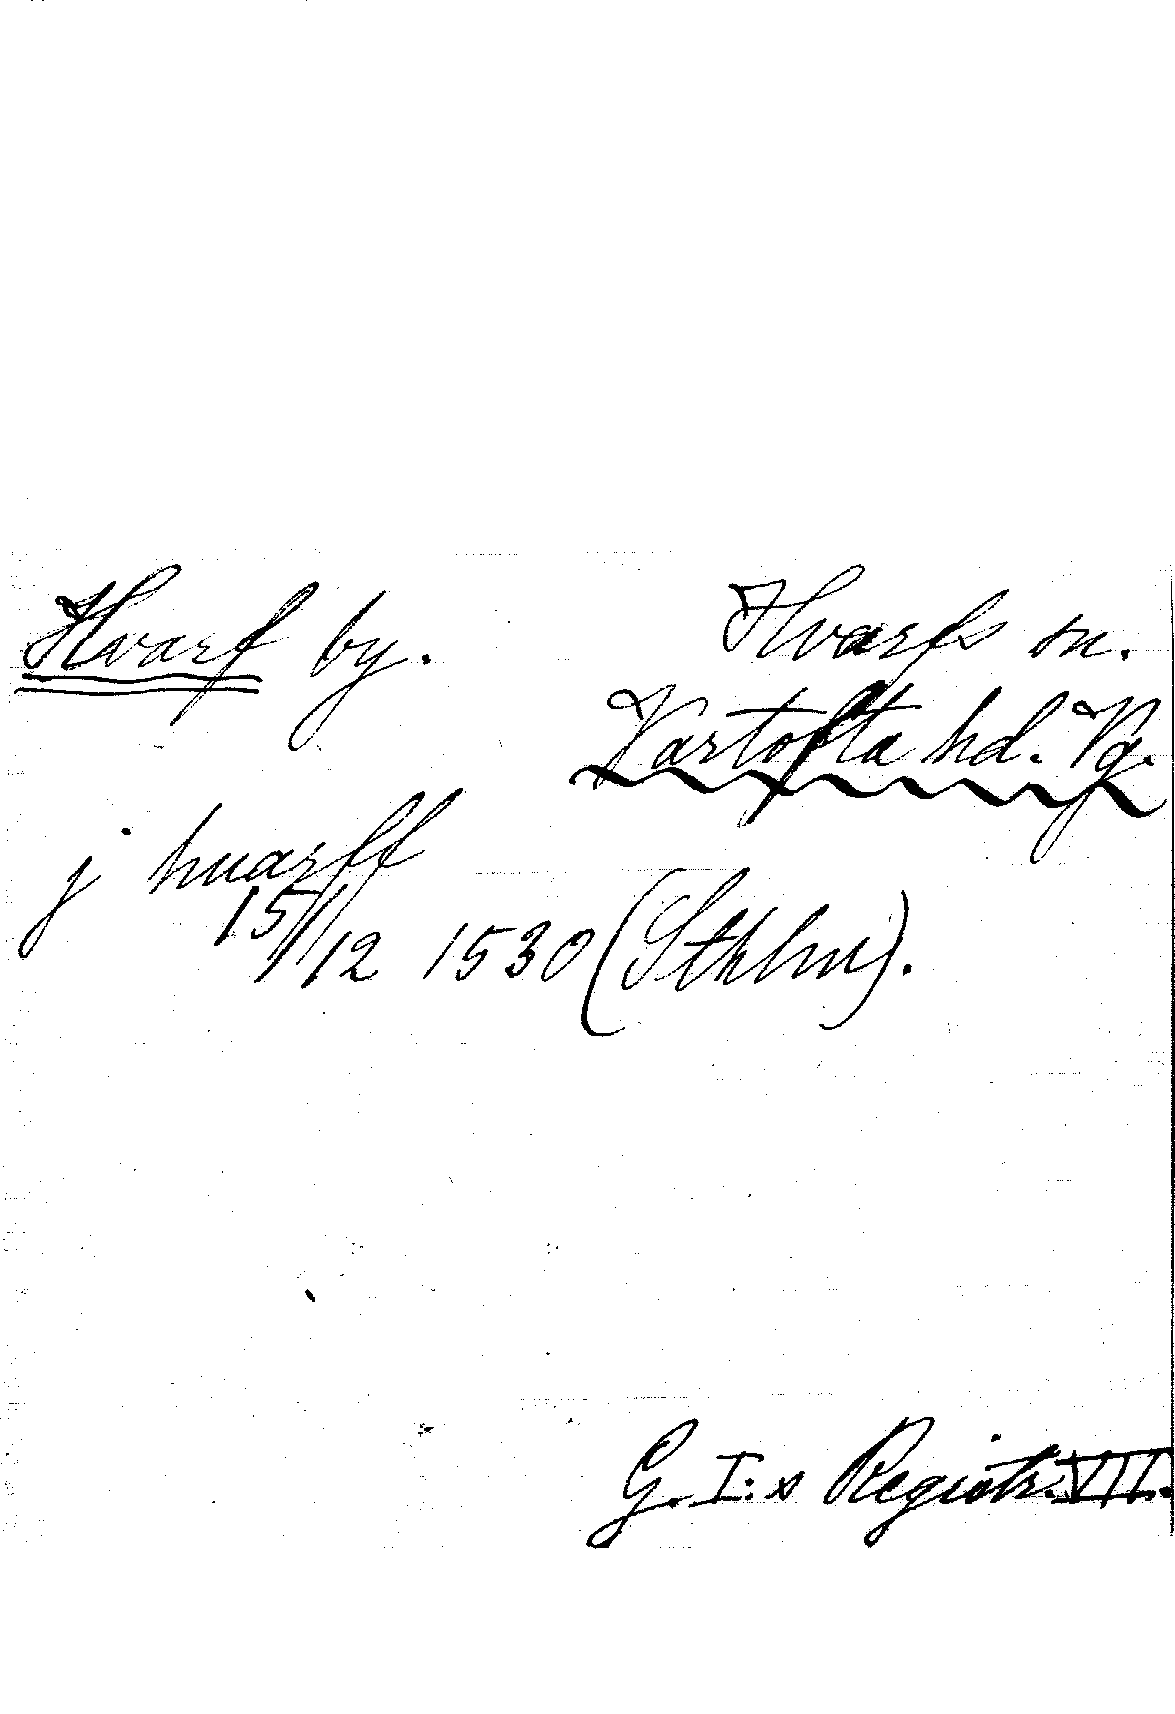 Hvarf by.
Hvarfs sn.
Vartofta hd. Vg.
j huarff
15/12 1530 (Sthlm).
G. I:s Registr. VII.